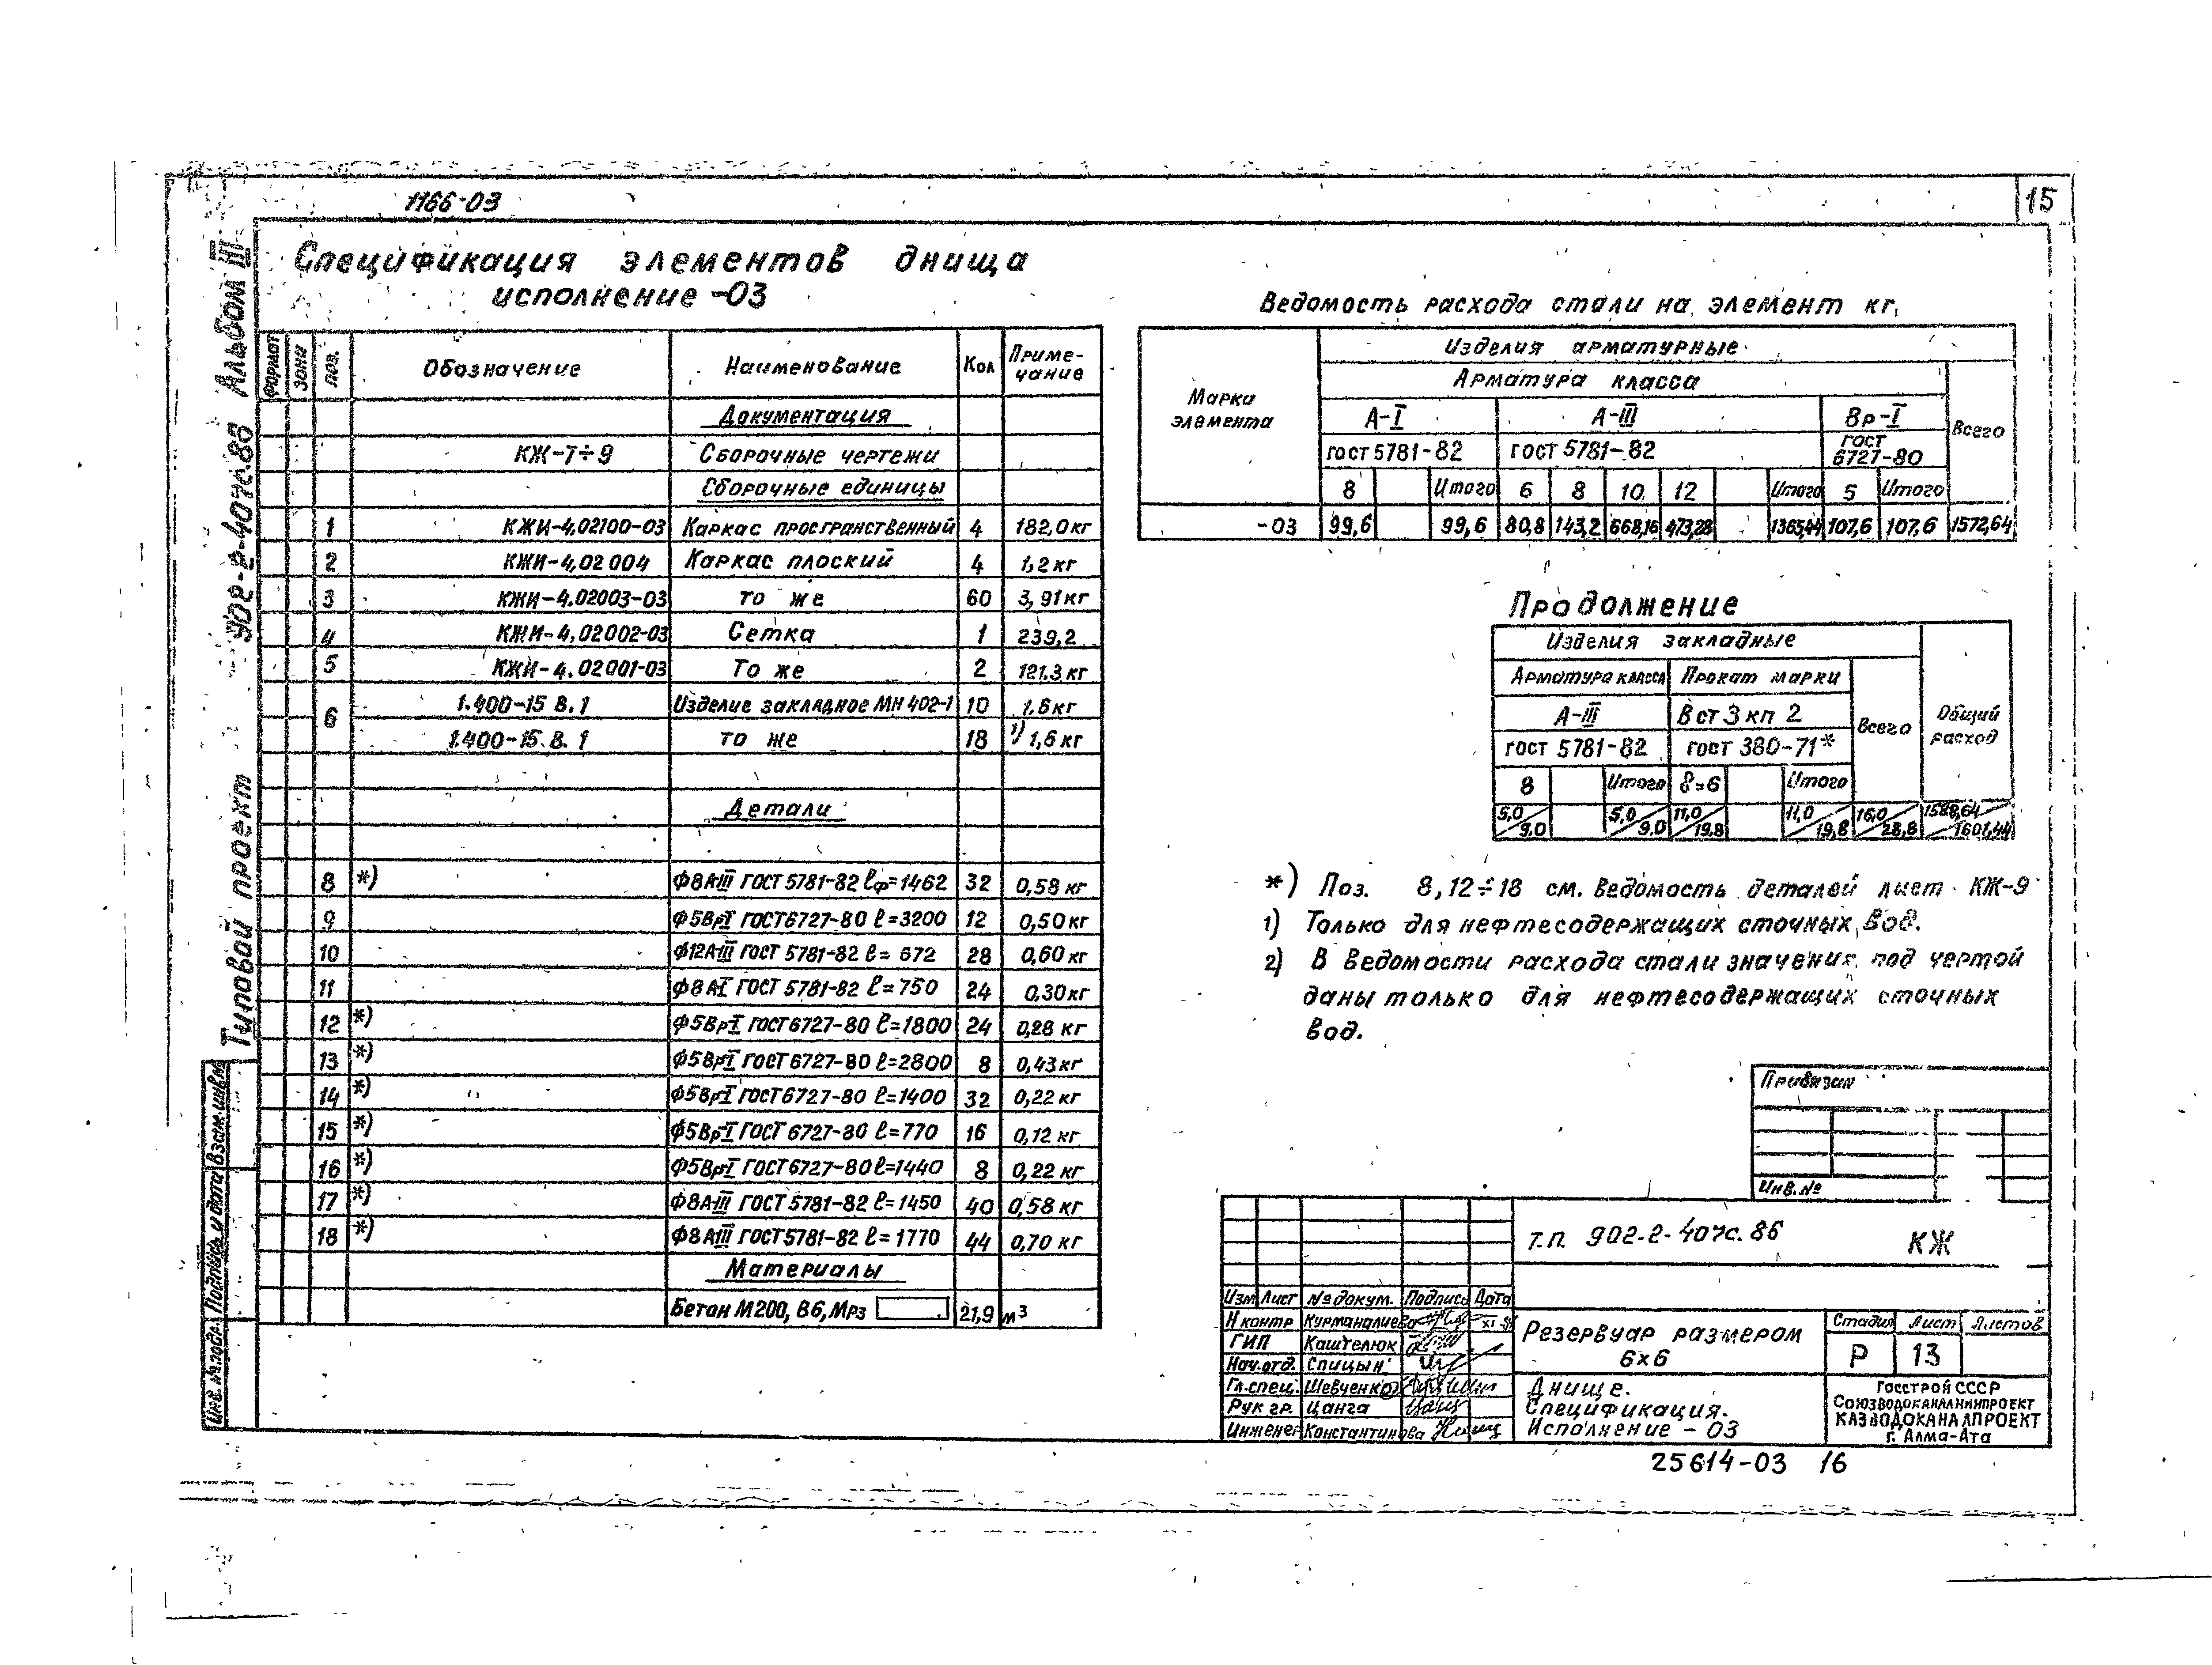 1166-03
15
Альбом III
902-2-407с.86
Типовой проект
Взам.инв.№
Подпись и дата
Инв.№подл.
Спецификация элементов днища
исполнение -03
Формат Зона Поз. Обозначение Наименование Кол Приме-
чание
Документация
КЖ-7÷9 Сборочные чертежи
Сборочные единицы
1 КЖИ-4.02100-03 Каркас пространственный 4 182,0кг
2 КЖИ-4,02 004 Каркас плоский 4 1,2 кг
3 КЖИ-4.02003-03 то же 60 3,91кг
4 КЖИ-4,02002-03 Сетка 1 239,2
5 КЖИ-4.02001-03 То же 2 121.3 кг
6 1.400-15 В.1 Изделие закладное МН 402-1 10 1.6кг
1.400-15.В.1 то же 18 1) 1,6 кг
Детали
8 *) Ф8АIII ГОСТ 5781-82 ℓф=1462 32 0,58 кг
9 Ф5ВрI ГОСТ6727-80 ℓ=3200 12 0,50кг
10 Ф12АIII ГОСТ 5781-82 ℓ= 672 28 0,60кг
11 Ф8 АI ГОСТ 5781-82 ℓ=750 24 0,30кг
12 *) Ф5ВрI ГОСТ6727-80 ℓ=1800 24 0,28 кг
13 *) Ф5ВрI ГОСТ6727-80 ℓ=2800 8 0,43кг
14 *) Ф5ВрI ГОСТ6727-80 ℓ=1400 32 0,22 кг
15 *) Ф5ВрI ГОСТ 6727-80 ℓ=770 16 0,12 кг
16 *) Ф5ВрI ГОСТ6727-80 ℓ=1440 8 0,22 кг
17 *) Ф8АIII ГОСТ 5781-82 ℓ=1450 40 0,58 кг
18 *) Ф8АIII ГОСТ5781-82 ℓ=1770 44 0,70 кг
Материалы
Бетон М200, В6, Мрз 21,9 м³
Ведомость расхода стали на элемент кг.
Марка
элемента
Изделия арматурные
Арматура класса
А-I А-III Вр-I Всего
гост 5781-82 гост 5781-82 гост
6727-80
8 Итого 6 8 10 12 Итого 5 Итого
-03 99,6 99,6 80,8 143,2 668,16 473,28 1365,44 107,6 107,6 1572,64
Продолжение
Изделия закладные
Арматура класса Прокат марки
А-III Вст 3 кп 2 Всего Общий
расход
гост 5781-82 гост 380-71*
8 Итого δ=6 Итого
5,0 5,0 11,0 11,0 16,0 1588,64
9.0 9.0 19.8 19,8 28,8 1601,44
*) Поз. 8,12÷18 см. Ведомость деталей лист КЖ-9
1) Только для нефтесодержащих сточных вод.
2) В Ведомости расхода стали значения под чертой
даны только для нефтесодержащих сточных
вод.
Привязан
Инв.№
Т.П. 902-2-407с.86 КЖ
Изм Лист №докум. Подпись Дата
Н контр Курманалиева
ГИП Каштелюк
Нач.отд. Спицын
Гл.спец. Шевченко
Рук гр. Цанга
Инженер Константинова
Резервуар размером
6х6
Стадия Лист Листов
Р 13
Днище.
Спецификация.
Исполнение - 03
Госстрой СССР
Союзводоканалниипроект
Казводоканалпроект
г. Алма-Ата
25614-03 16